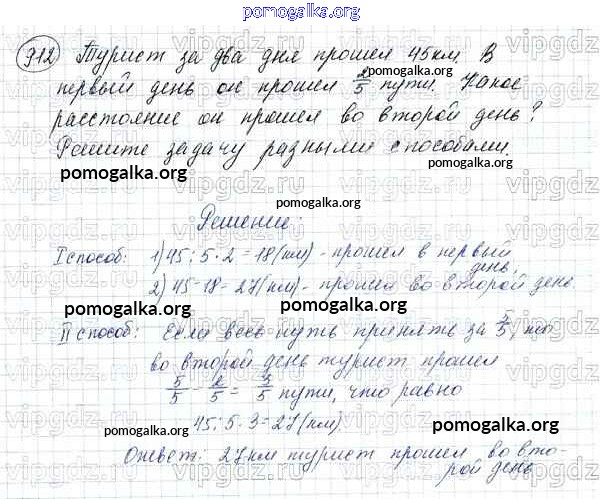 pomogalka.org
912 Турист за два дня прошел 45 км. В
первый день он прошел 2/5 пути. Какое
расстояние он прошел во второй день?
Решите задачу разными способами.
pomogalka.org
pomogalka.org pomogalka.org
Решение:
I способ: 1) 45 : 5 · 2 = 18 (км) - прошел в первый
день,
2) 45 - 18 = 27 (км) - прошел во второй день.
pomogalka.org pomogalka.org
II способ: Если весь путь принять за 5/5,
во второй день турист прошел
5/5 - 2/5 = 3/5 пути, что равно
pomogalka.org
45 : 5 · 3 = 27 (км).
pomogalka.org pomogalka.org
Ответ: 27 км турист прошел во вто-
рой день